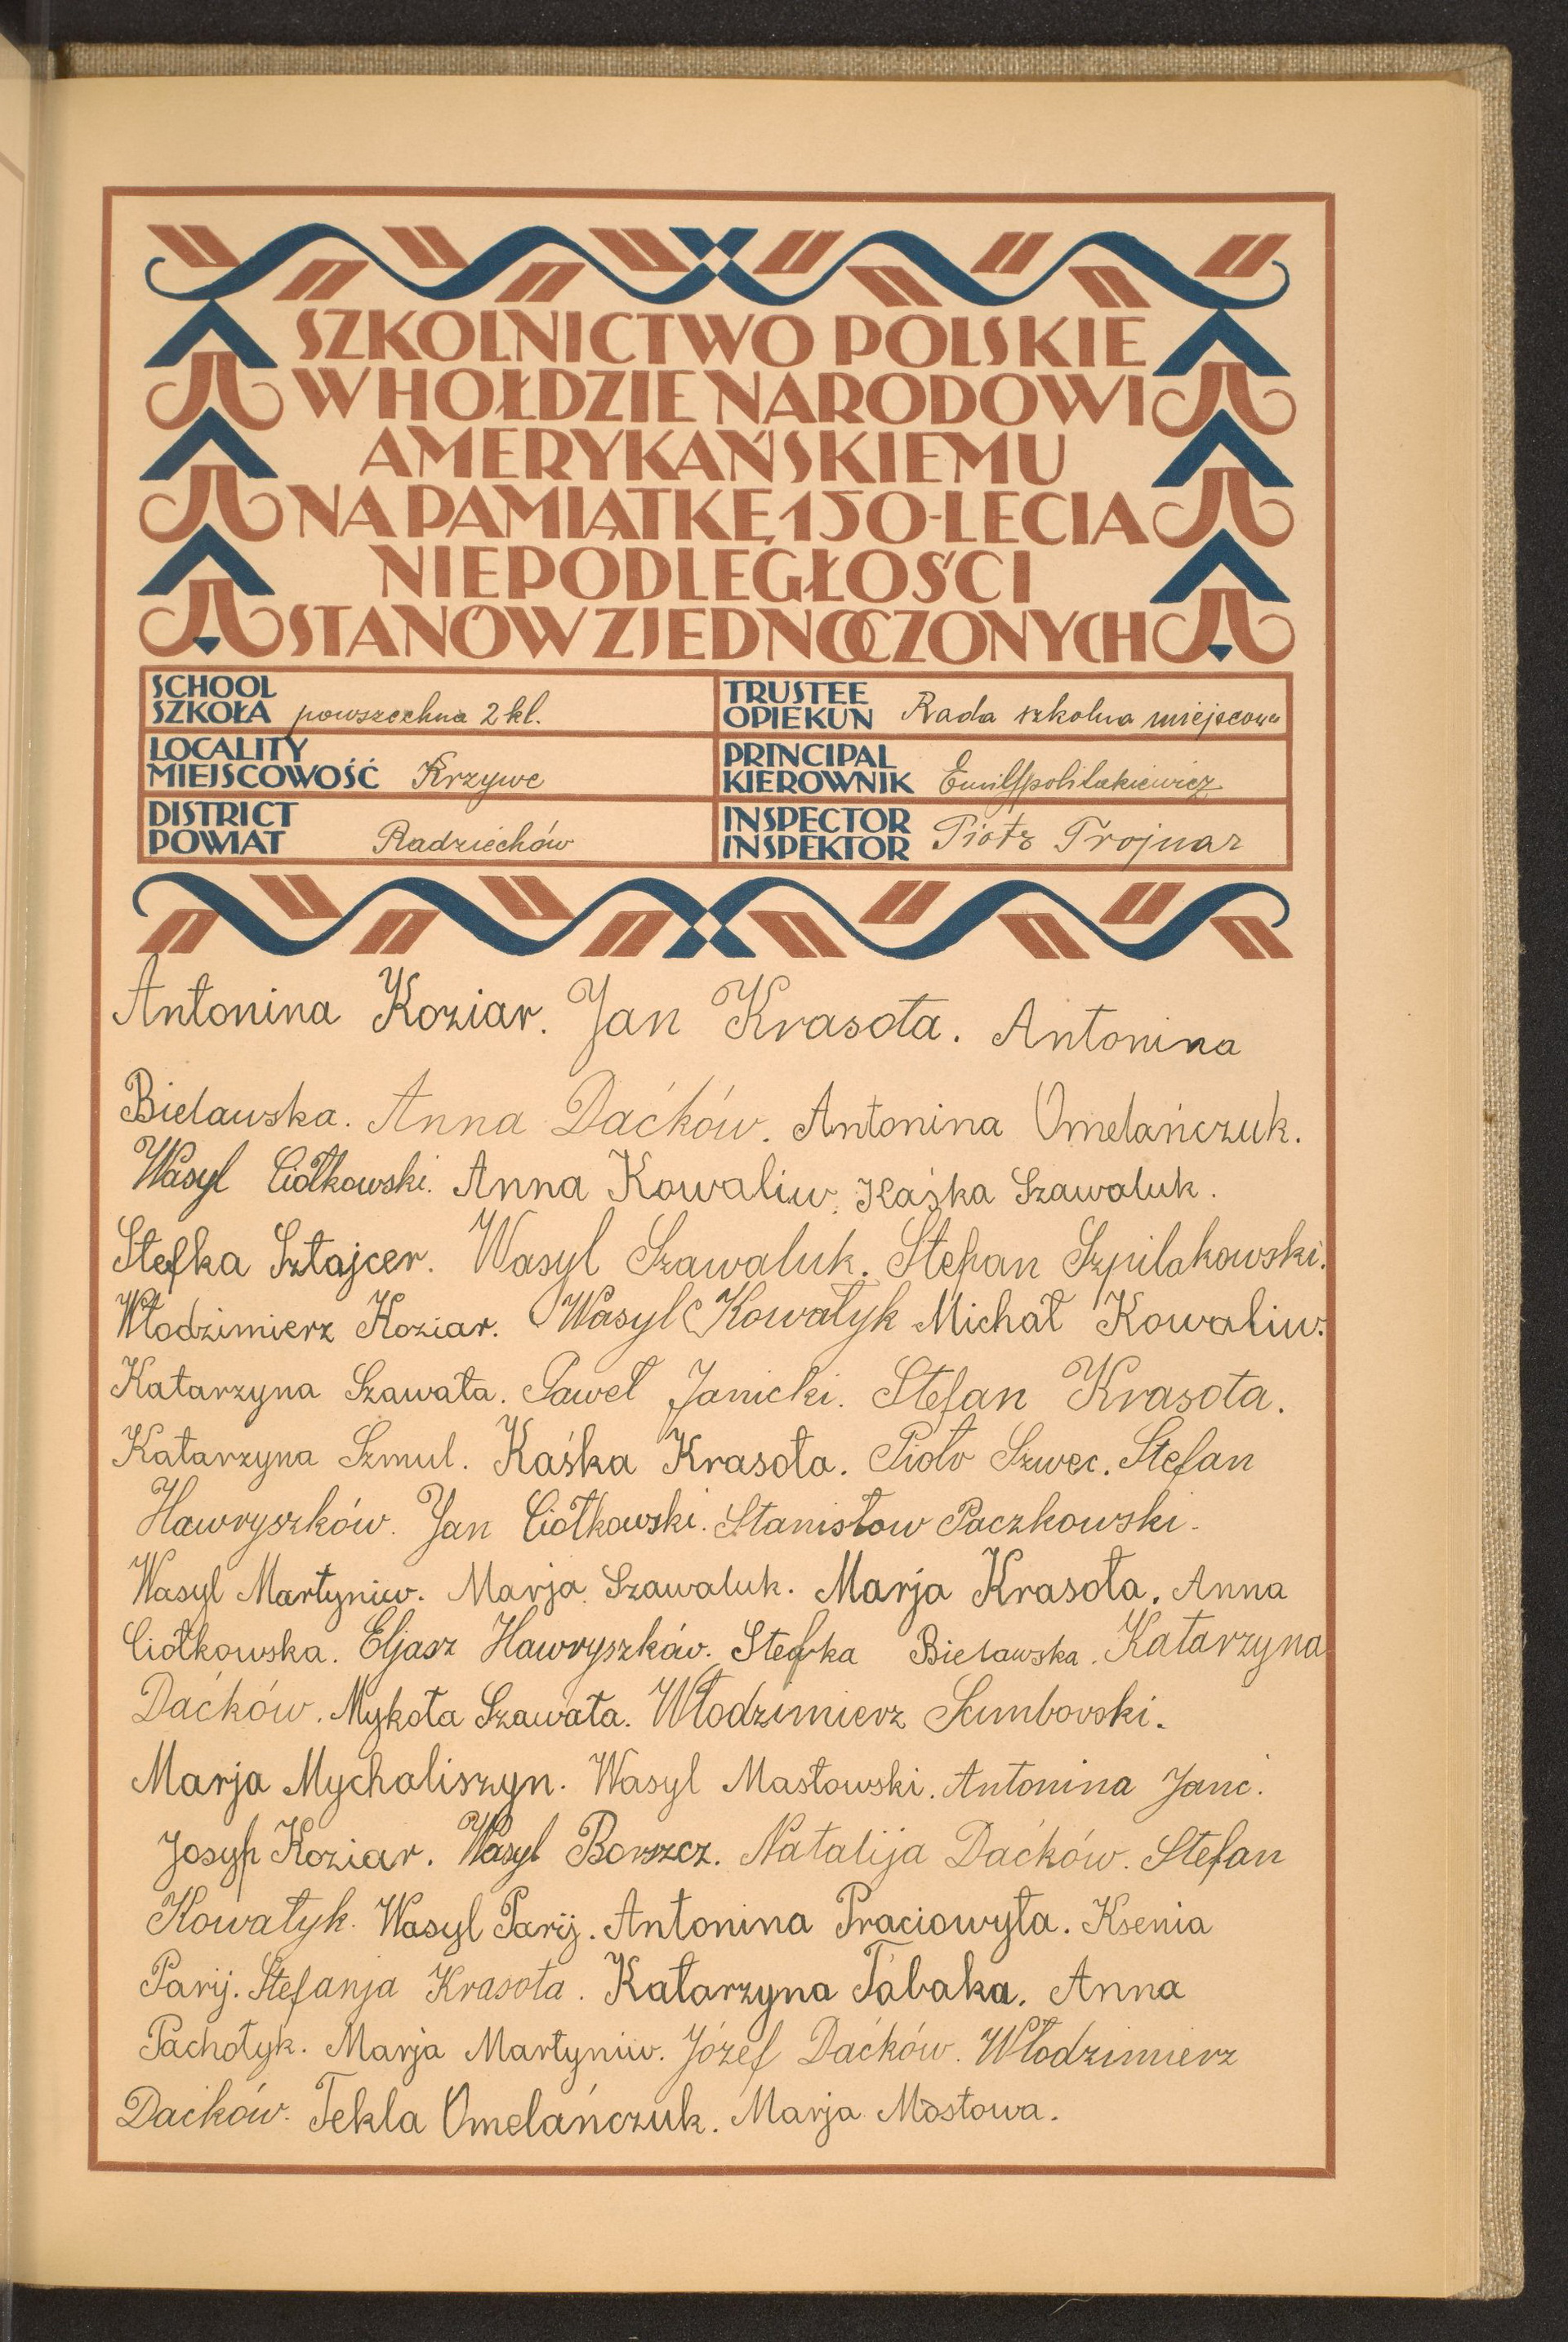 SZKOLNICTWO POLSKIE
W HOŁDZIE NARODOWI
AMERYKAŃSKIEMU
NA PAMIĄTKĘ 150-LECIA
NIEPODLEGŁOŚCI
STANÓW ZJEDNOCZONYCH
SCHOOL
SZKOŁA powszechna 2 kl.
TRUSTEE
OPIEKUN Rada szkolna miejscowa
LOCALITY
MIEJSCOWOŚĆ Krzywe
PRINCIPAL
KIEROWNIK Emil
DISTRICT
POWIAT Radziechów
INSPECTOR
INSPEKTOR Piotr Trojnar
Antonina Koziar. Jan Krasota. Antonina
Bielawska. Anna Daćków. Antonina Omelańczuk.
Wasyl Ciołkowski. Anna Kowaliw. Kaśka Szawaluk.
Stefka Sztajcer. Wasyl Szawaluk. Stefan Szpilakowski.
Włodzimierz Koziar. Wasyl Kowałyk Michał Kowaliw.
Katarzyna Szawała. Paweł Janicki. Stefan Krasota.
Katarzyna Szmul. Kaśka Krasota. Piotr Szwec. Stefan
Hawryszków. Jan Ciołkowski. Stanisław Paczkowski.
Wasyl Martyniw. Marja Szawaluk. Marja Krasota. Anna
Ciołkowska. Eljasz Hawryszków. Stefka Bielawska. Katarzyna
Daćków. Mykoła Szawała. Włodzimierz Sumborski.
Marja Mychaliszyn. Wasyl Masłowski. Antonina Janc.
Josyp Koziar. Wasyl Borszcz. Natalija Daćków. Stefan
Kowałyk. Wasyl Parij. Antonina Praciowyta. Ksenia
Parij. Stefanja Krasota. Katarzyna Tabaka. Anna
Pachołyk. Marja Martyniw. Józef Daćków. Włodzimierz
Daćków. Tekla Omelańczuk. Marja Mostowa.